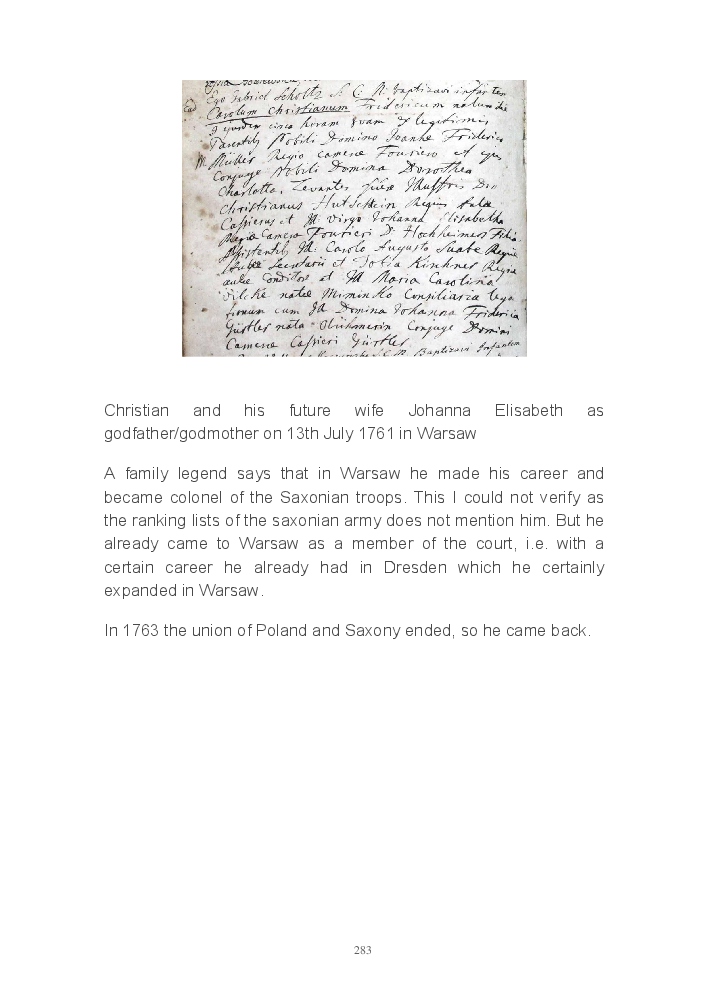 Ego Gabriel Scholtz S. C. M. baptizavi infantem
Carolum Christianum Fridericum natum die
9 ejusdem circa horam 8vam ex legitimis
Parentib Nobili Domino Joanne Friderico
Müller Regio Camerae Fouriero et ejus
Conjuge Nobili Domina Dorothea
Charlotta, Levantes fuere
Christianus Regius
Cassirius et M. Virgo Johanna Elisabetha
Regiae Camerae Fourieri D. Hochheimers Filia.
Assistentib M. Carolo Augusto Suabe Regiae
Aulae Secretarii et Tobia Kirchner Regiae
aulae Conditore et Maria Carolina
Vilcke natae Consiliaria lega
tionum cum Domina Johanna Friderica
Gürtler nata Conjuge Domini
Camerae Cassieri Gürtler
Baptizavi Infantem
Christian and his future wife Johanna Elisabeth as
godfather/godmother on 13th July 1761 in Warsaw
A family legend says that in Warsaw he made his career and
became colonel of the Saxonian troops. This I could not verify as
the ranking lists of the saxonian army does not mention him. But he
already came to Warsaw as a member of the court, i.e. with a
certain career he already had in Dresden which he certainly
expanded in Warsaw.
In 1763 the union of Poland and Saxony ended, so he came back.
283